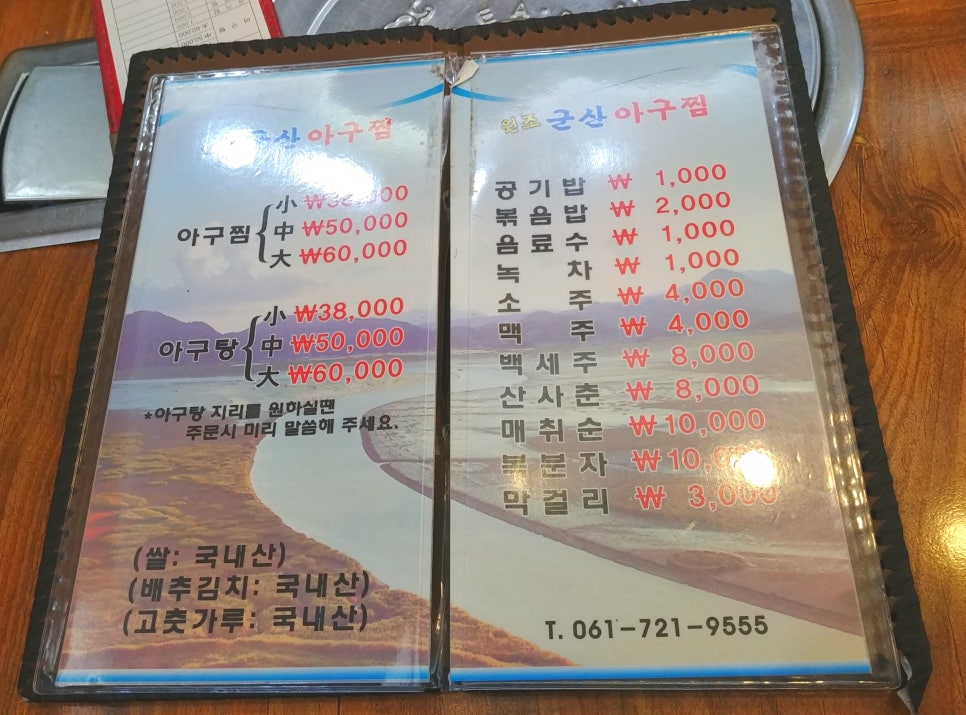 군산 아구찜
아구찜
小 ₩38,000
中 ₩50,000
大 ₩60,000
아구탕
小 ₩38,000
中 ₩50,000
大 ₩60,000
*아구탕 지리를 원하실땐
주문시 미리 말씀해 주세요.
(쌀: 국내산)
(배추김치: 국내산)
(고춧가루: 국내산)
원조 군산 아구찜
공기밥 ₩ 1,000
볶음밥 ₩ 2,000
음료수 ₩ 1,000
녹차 ₩ 1,000
소주 ₩ 4,000
맥주 ₩ 4,000
백세주 ₩ 8,000
산사춘 ₩ 8,000
매취순 ₩10,000
복분자 ₩10,000
막걸리 ₩ 3,000
T. 061-721-9555